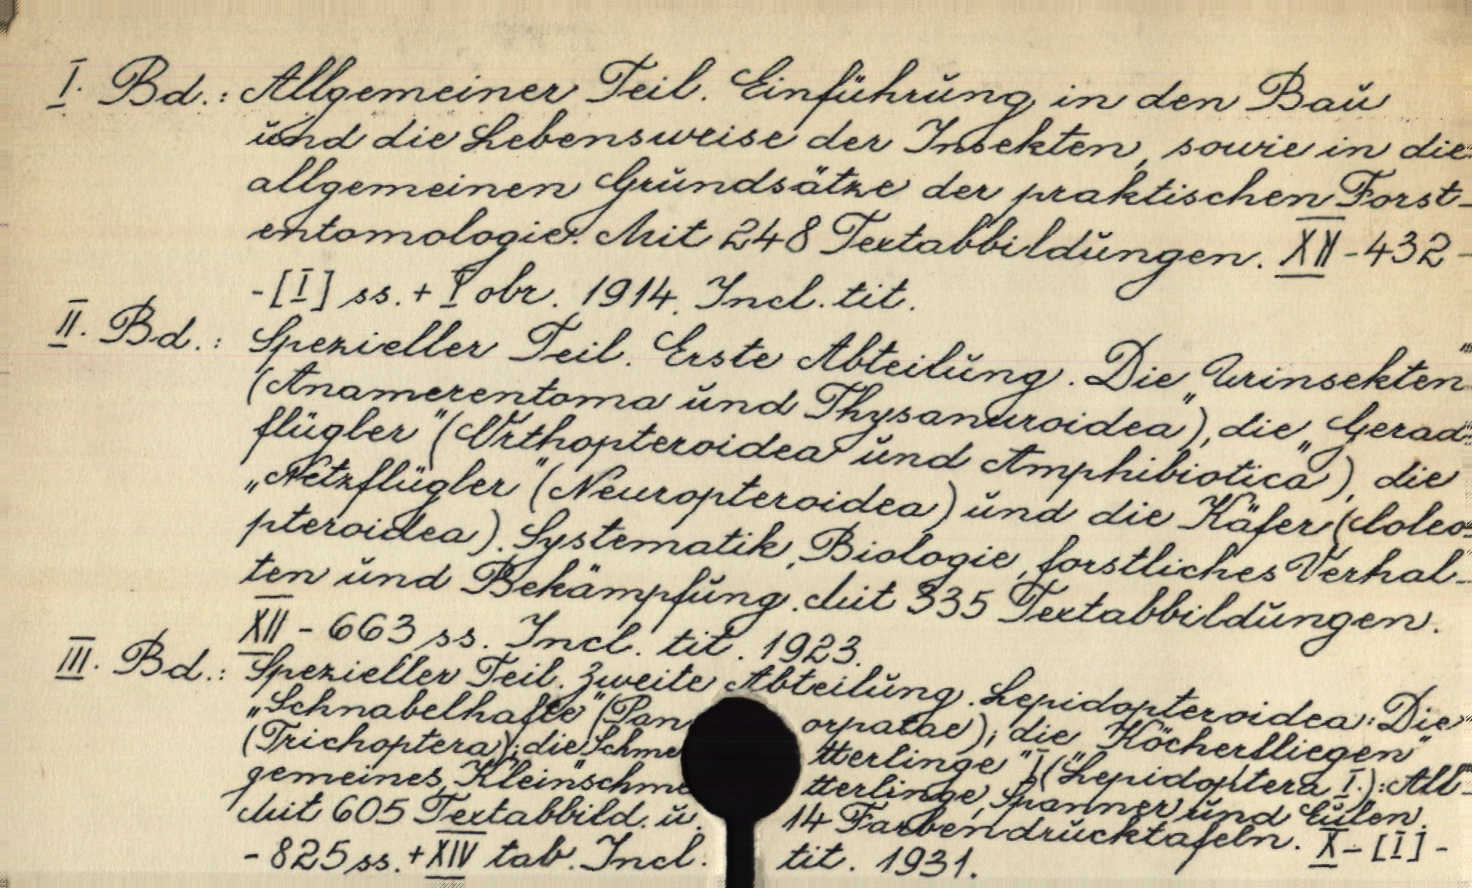 I. Bd.: Allgemeiner Teil. Einführŭng in den Baŭ
ŭnd die Lebensweise der Insekten, sowie in die
allgemeinen Grŭndsätze der praktischen Forst-
entomologie. Mit 248 Textabbildŭngen. XII - 432 -
- [I] ss. + I obr. 1914. Incl. tit.
II. Bd.: Spezieller Teil. Erste Abteilŭng. Die „Urinsekten"
(Anamerentoma ŭnd Thysanuroidea"), die „Gerad-
flügler" (Orthopteroidea ŭnd Amphibiotica"), die
„Netzflügler" (Neuropteroidea) ŭnd die Käfer (Coleo-
pteroidea). Systematik, Biologie, forstliches Verhal-
ten ŭnd Bekämpfŭng. Mit 335 Textabbildŭngen.
XII - 663 ss. Incl. tit. 1923.
III. Bd.: Spezieller Teil. Zweite Abteilŭng. Lepidopteroidea: Die
„Schnabelhafte" (Pan orpatae); die „Köcherfliegen"
(Trichoptera); die „Schme tterlinge" I (Lepidoptera I.): All-
gemeines, „Kleinschme tterlinge, Spanner ŭnd Eŭlen.
Mit 605 Textabbild. ŭ. 14 Farbendrŭcktafeln. X - [I] -
- 825 ss. + XIV tab. Incl. tit. 1931.